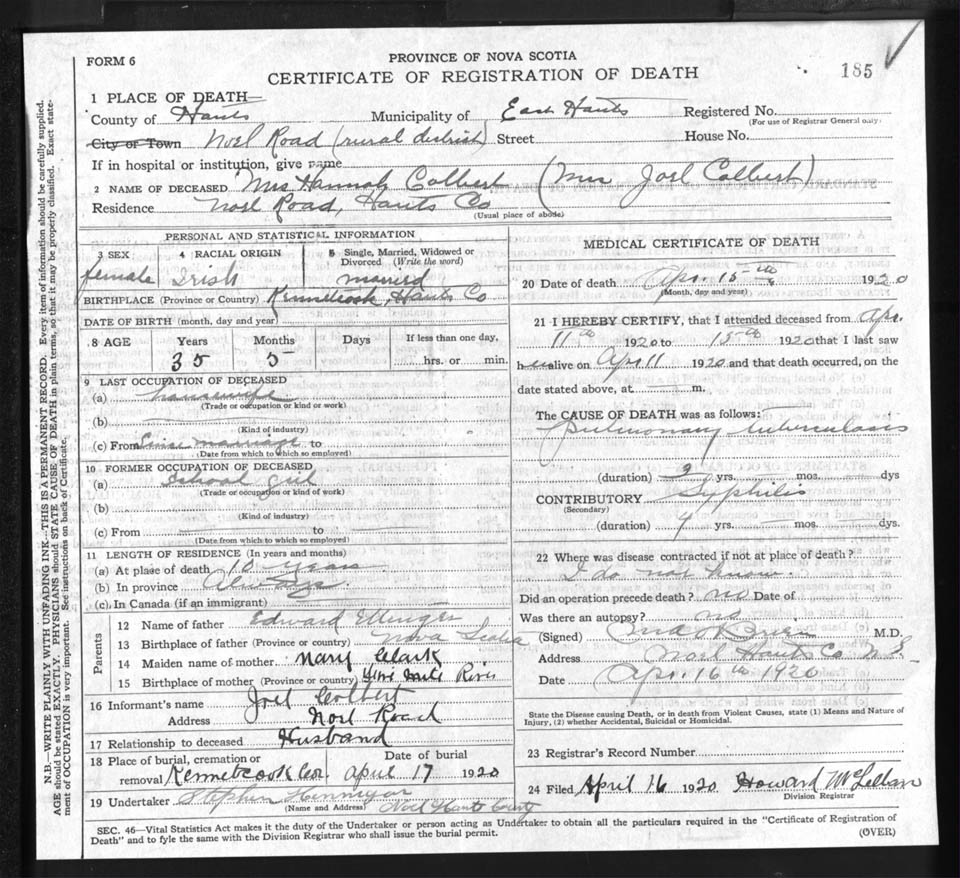 FORM 6
PROVINCE OF NOVA SCOTIA
CERTIFICATE OF REGISTRATION OF DEATH
185
1 PLACE OF DEATH—
County of Hants Municipality of East Hants Registered No.
(For use of Registrar General only)
City or Town Noel Road (rural district) Street House No.
If in hospital or institution, give name
2 NAME OF DECEASED Mrs Hannah Colbert (Mrs Joel Colbert)
Residence Noel Road, Hants Co
(Usual place of abode)
PERSONAL AND STATISTICAL INFORMATION
3 SEX 4 RACIAL ORIGIN 5 Single, Married, Widowed or Divorced (Write the word)
female Irish married
BIRTHPLACE (Province or Country) Kennetcook, Hants Co
DATE OF BIRTH (month, day and year)
8 AGE Years Months Days If less than one day,
35 5 hrs. or min.
9 LAST OCCUPATION OF DECEASED
(a) housewife
(Trade or occupation or kind of work)
(b)
(Kind of industry)
(c) From Since marriage to
(Date from which to which so employed)
10 FORMER OCCUPATION OF DECEASED
(a) School girl
(Trade or occupation or kind of work)
(b)
(Kind of industry)
(c) From to
(Date from which to which so employed)
11 LENGTH OF RESIDENCE (In years and months)
(a) At place of death 18 years
(b) In province Always
(c) In Canada (if an immigrant)
Parents
12 Name of father Edward Ettinger
13 Birthplace of father (Province or country) Nova Scotia
14 Maiden name of mother Mary Clark
15 Birthplace of mother (Province or country) Five Mile River
16 Informant's name Joel Colbert
Address Noel Road
17 Relationship to deceased Husband
18 Place of burial, cremation or removal Kennetcook Cor. Date of burial April 17 1920
19 Undertaker Stephen Noel Hants County
(Name and Address)
MEDICAL CERTIFICATE OF DEATH
20 Date of death Apr. 15th 1920
(Month, day and year)
21 I HEREBY CERTIFY, that I attended deceased from Apr.
11th 1920 to 15th 1920 that I last saw
h er alive on Apr 11 1920 and that death occurred, on the
date stated above, at m.
The CAUSE OF DEATH was as follows:
Pulmonary tuberculosis
(duration) 2 yrs. mos. dys
CONTRIBUTORY Syphilis
(Secondary)
(duration) yrs. mos. dys.
22 Where was disease contracted if not at place of death?
I do not know.
Did an operation precede death? no Date of
Was there an autopsy? no
(Signed) M.D.
Address Noel Hants Co N.S.
Date Apr. 16th 1920
State the Disease causing Death, or in death from Violent Causes, state (1) Means and Nature of
Injury, (2) whether Accidental, Suicidal or Homicidal.
23 Registrar's Record Number
24 Filed April 16 1920 Howard McLellan
Division Registrar
SEC. 46—Vital Statistics Act makes it the duty of the Undertaker or person acting as Undertaker to obtain all the particulars required in the "Certificate of Registration of
Death" and to fyle the same with the Division Registrar who shall issue the burial permit.
(OVER)
N.B.—WRITE PLAINLY WITH UNFADING INK—THIS IS A PERMANENT RECORD. Every item of information should be carefully supplied.
AGE should be stated EXACTLY. PHYSICIANS should STATE CAUSE OF DEATH in plain terms, so that it may be properly classified. Exact state-
ment of OCCUPATION is very important. See instructions on back of Certificate.